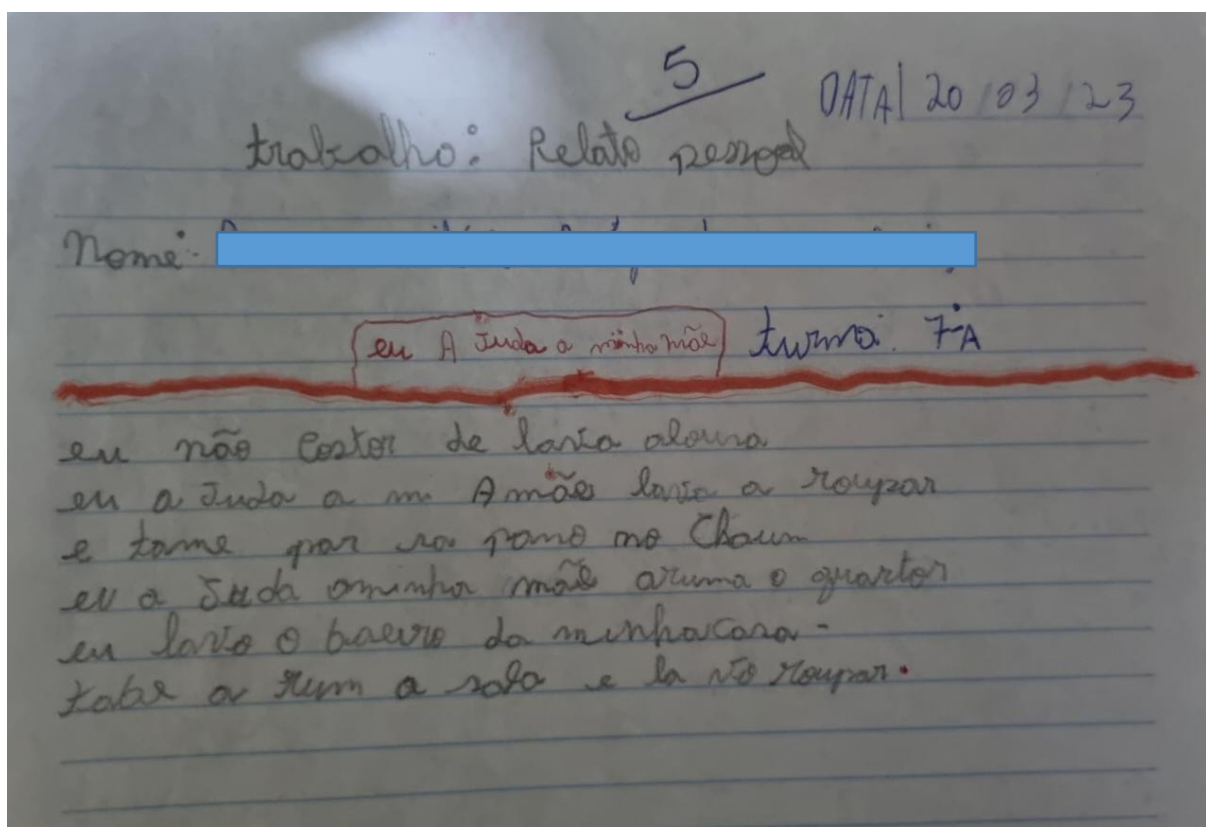 5
DATA| 20/03/23
trabalho: Relato pessoal
Nome:
eu A Juda a minha mãe
turma: 7ªA
eu não Costor de lavia aloura
eu a Juda a m A mães lavia a roupar
e tame par sa pano no Chaum
eu a Juda ominha mãe aruma o quartor
eu lavio o baeiro da minhacasa-
tabe a rum a sala e la vio roupar.